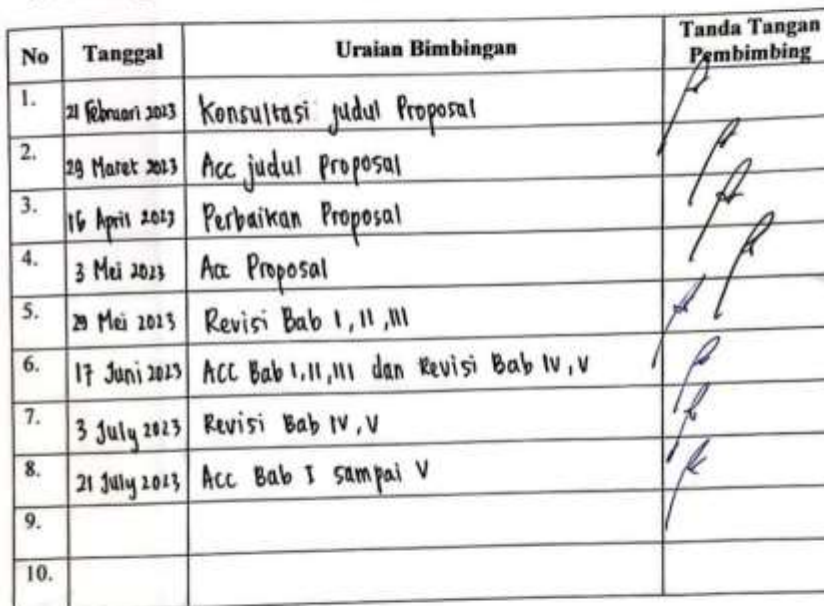 No Tanggal Uraian Bimbingan Tanda Tangan Pembimbing
1. 21 Februari 2023 Konsultasi judul Proposal
2. 29 Maret 2023 Acc judul Proposal
3. 16 April 2023 Perbaikan Proposal
4. 3 Mei 2023 Acc Proposal
5. 29 Mei 2023 Revisi Bab I, II, III
6. 17 Juni 2023 ACC Bab I, II, III dan Revisi Bab IV, V
7. 3 July 2023 Revisi Bab IV, V
8. 21 July 2023 Acc Bab I sampai V
9.
10.